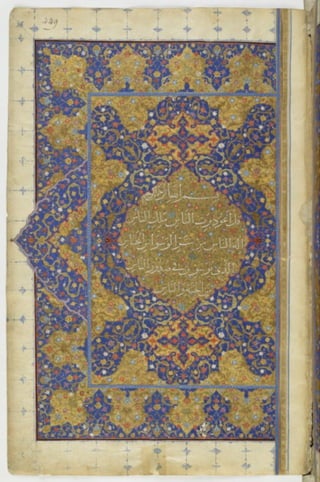 بسم الله الرحمن الرحيم
قل اعوذ برب الناس ملك الناس
اله الناس من شر الوسواس الخناس
الذي يوسوس في صدور الناس
من الجنة والناس